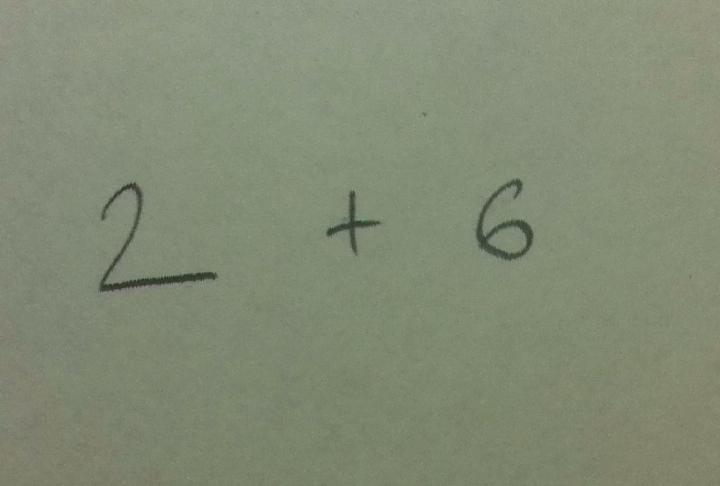 2 + 6